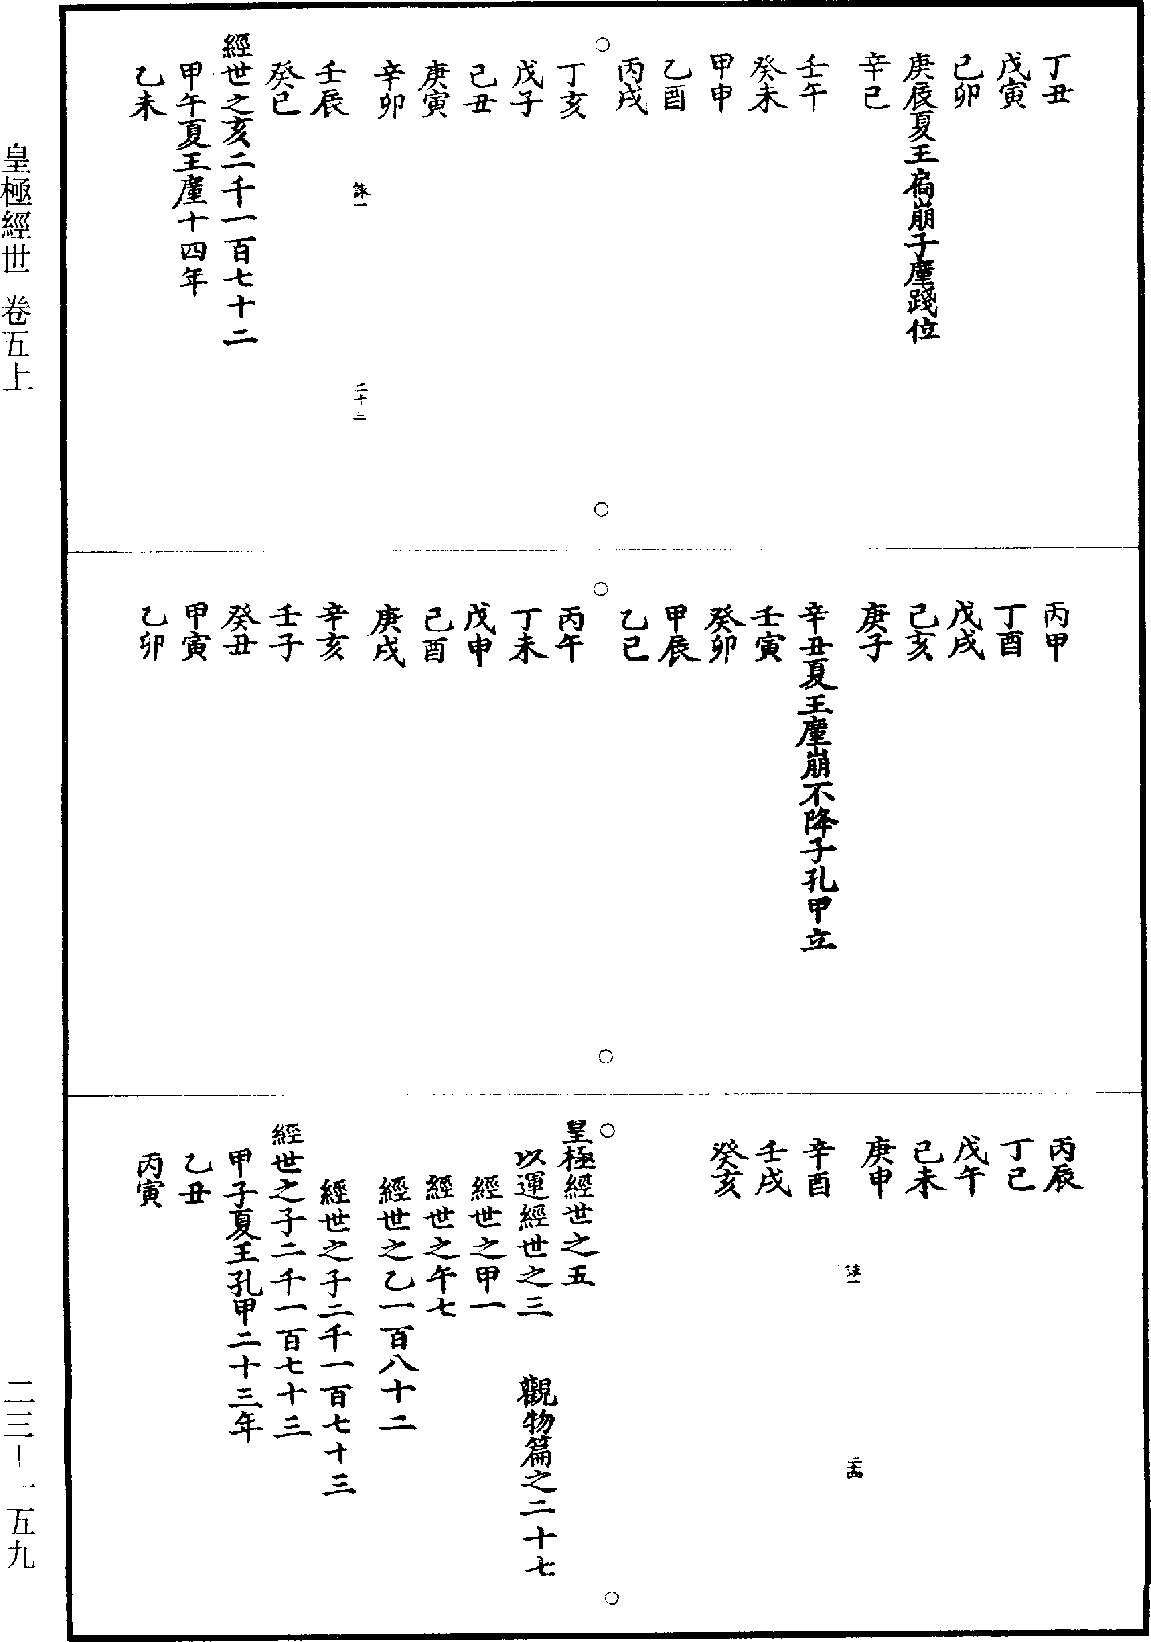 丁丑
戊寅
己卯
庚辰夏王扃崩子廑踐位
辛巳
壬午
癸未
甲申
乙酉
丙戌
丁亥
戊子
己丑
庚寅
辛卯
壬辰
癸巳
經世之亥二千一百七十二
甲午夏王廑十四年
乙未
丙甲
丁酉
戊戌
己亥
庚子
辛丑夏王廑崩不降子孔甲立
壬寅
癸卯
甲辰
乙巳
丙午
丁未
戊申
己酉
庚戌
辛亥
壬子
癸丑
甲寅
乙卯
丙辰
丁巳
戊午
己未
庚申
辛酉
壬戌
癸亥
皇極經世之五
以運經世之三　觀物篇之二十七
經世之甲一
經世之午七
經世之乙一百八十二
經世之子二千一百七十三
經世之子二千一百七十三
甲子夏王孔甲二十三年
乙丑
丙寅
皇極經世 卷五上
二三－一五九